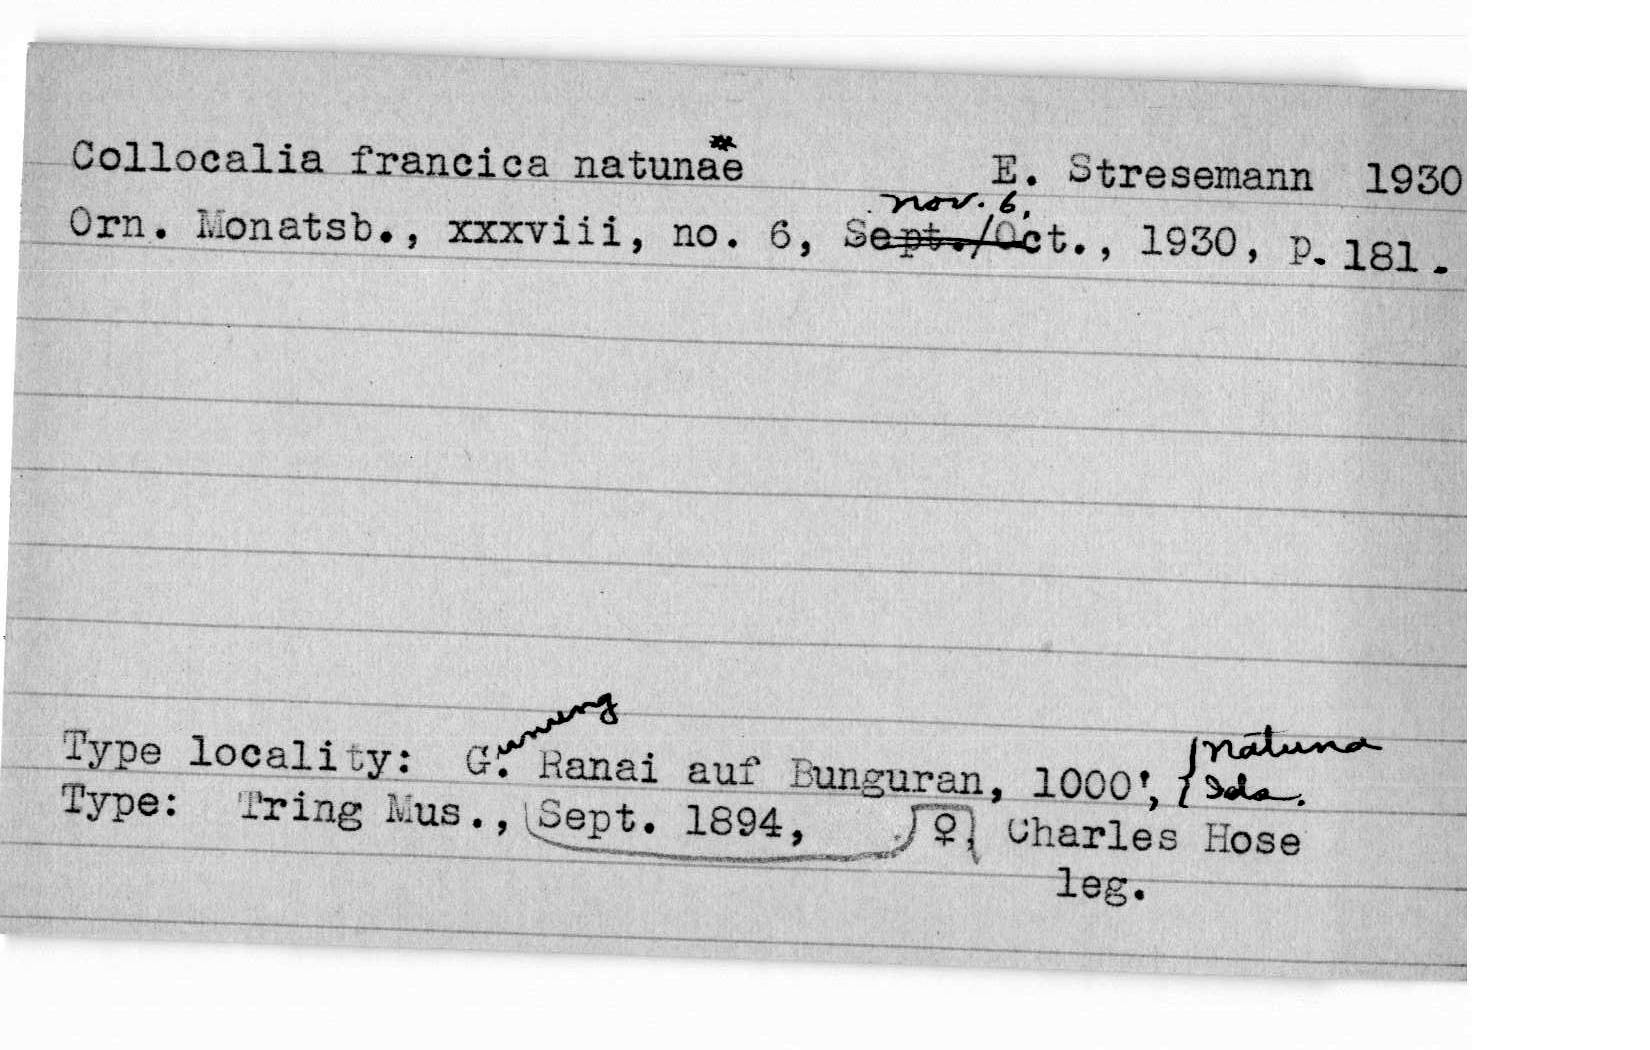 Collocalia francica natunae E. Stresemann 1930
nov. 6,
Orn. Monatsb., xxxviii, no. 6, Sept./Oct., 1930, p. 181.
Type locality: Gunung Ranai auf Bunguran, 1000', {Natuna
Ids.
Type: Tring Mus., Sept. 1894, ♀, Charles Hose
leg.